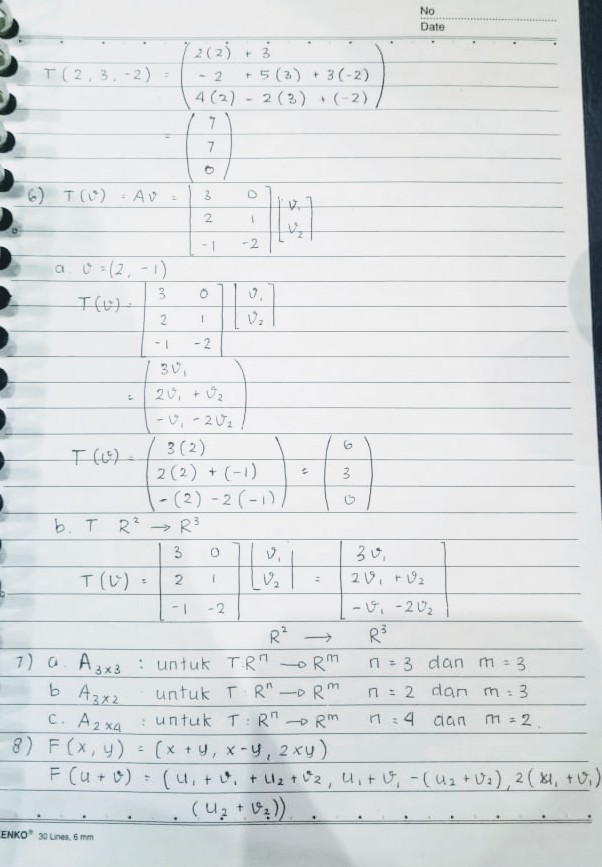 No
Date
T(2, 3, -2) = ( 2(2) + 3
- 2 + 5(3) + 3(-2)
4(2) - 2(3) + (-2) )
= ( 7
7
0 )
6) T(v) = Av = [ 3 0
2 1
-1 -2 ] [ v₁
v₂ ]
a. v = (2, -1)
T(v) = [ 3 0
2 1
-1 -2 ] [ v₁
v₂ ]
= ( 3v₁
2v₁ + v₂
-v₁ - 2v₂ )
T(v) = ( 3(2)
2(2) + (-1)
-(2) -2(-1) ) = ( 6
3
0 )
b. T R² → R³
T(v) = [ 3 0
2 1
-1 -2 ] [ v₁
v₂ ] = [ 3v₁
2v₁ + v₂
-v₁ - 2v₂ ]
R² → R³
7) a. A₃ₓ₃ : untuk T:Rⁿ → Rᵐ n = 3 dan m = 3
b A₃ₓ₂ untuk T:Rⁿ → Rᵐ n = 2 dan m = 3
c. A₂ₓ₄ : untuk T:Rⁿ → Rᵐ n = 4 dan m = 2.
8) F(x, y) = (x + y, x - y, 2xy)
F(u + v) = (u₁ + v₁ + u₂ + v₂, u₁ + v₁ - (u₂ + v₂), 2(u₁ + v₁)
(u₂ + v₂))
ENKO® 30 Lines, 6 mm